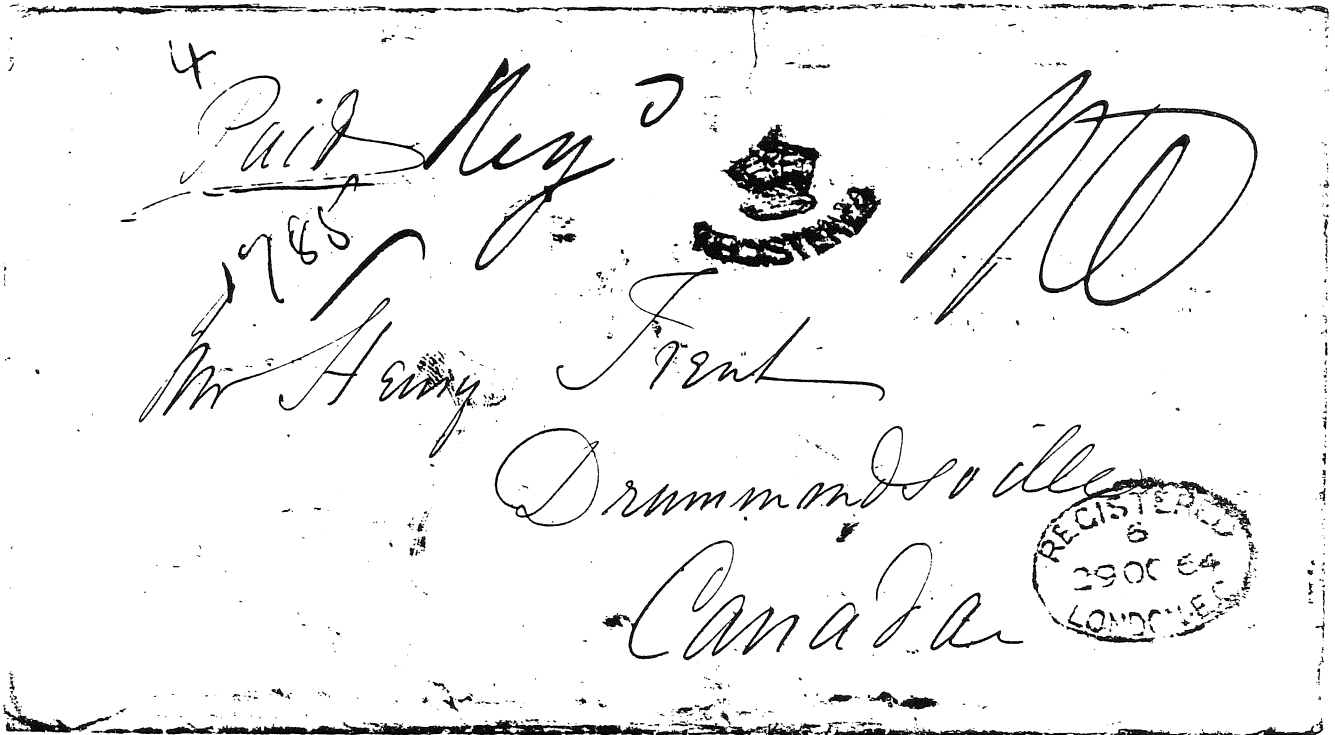 4
Paid Reg d
1785
REGISTERED
Mr Henry Trent
Drummondsville
Canada
REGISTERED
6
29 OC 64
LONDON E.C.